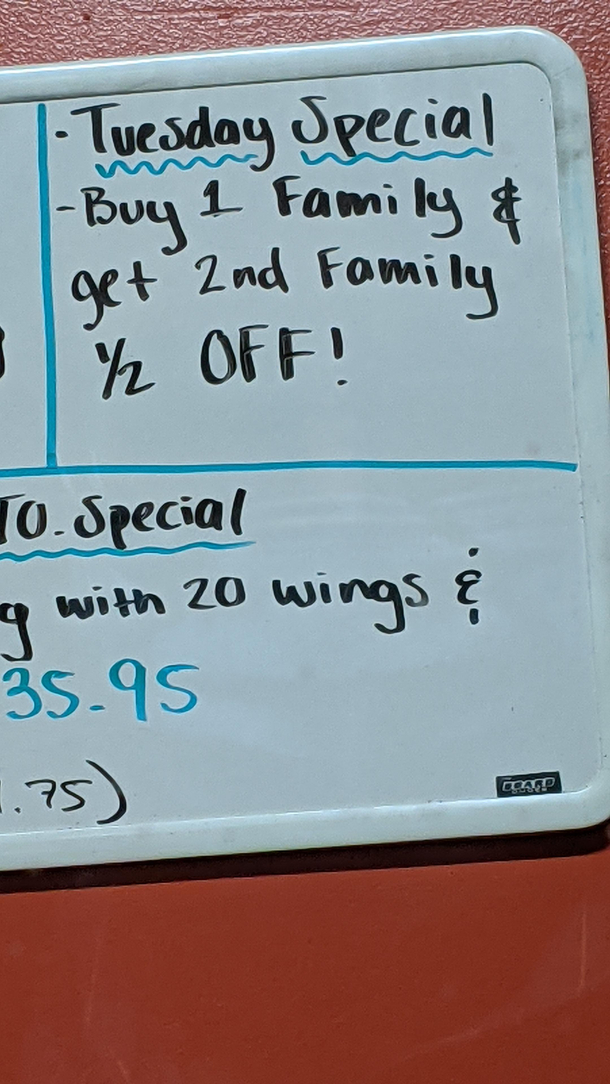 - Tuesday Special
- Buy 1 Family &
get 2nd Family
1/2 OFF!
TO. Special
g with 20 wings &
35.95
.75)
BOARD